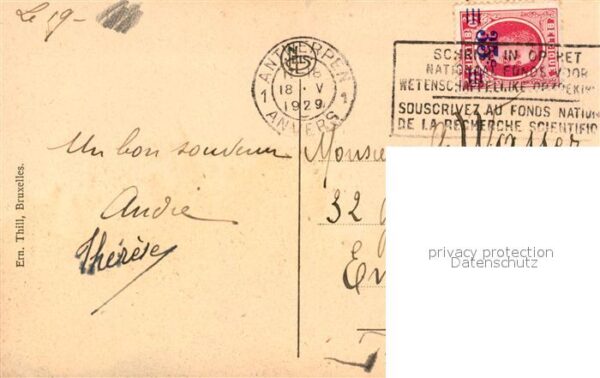 Le 19-
ANTWERPEN
18 V
1 1
1929
ANVERS
35
SCHRIJFT IN OP HET
NATIONAAL FONDS VOOR
WETENSCHAPPELIJKE OPZOEKIN
SOUSCRIVEZ AU FONDS NATION
DE LA RECHERCHE SCIENTIFIQ
Un bon souvenir
André
Thérèse
Monsie
32
Ern. Thill, Bruxelles.
privacy protection
Datenschutz